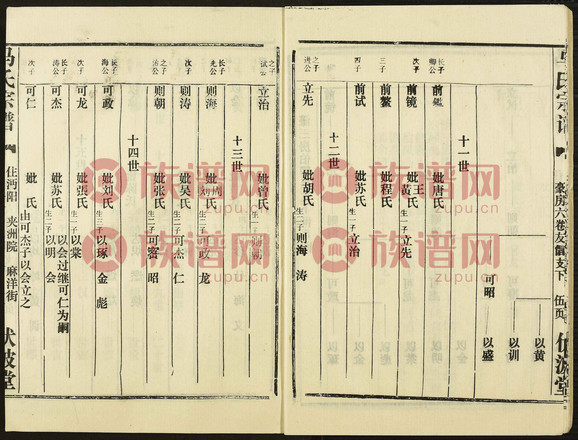 以黄
以训
可昭
以盛
十一世
长子
卿公
前鑑
妣唐氏
次子
前镜
妣王黄氏
生一子立先
三子
前鳌
妣程氏
四子
前试
妣苏氏
生一子立治
十二世
之子
进公
立先
妣胡氏
生二子则海 涛
之子
试公
立治
妣曾氏
十三世
长子
先公
则海
生二子可政 龙
次子
则涛
妣吴氏
生二子可杰 仁
之子
治公
则朝
妣张氏
十四世
长子
海公
可政
妣刘氏
生三子以琢 金 彪
次子
可龙
妣張氏
生一子以棠
长子
涛公
可杰
妣苏氏
生二子以明 会
以会过继可仁为嗣
次子
可仁
妣 氏
由可杰子以会立之
马氏宗谱
住沔阳 夹洲院 麻洋街
伏波堂
族谱网
zupu.cn
族谱网
zupu.cn